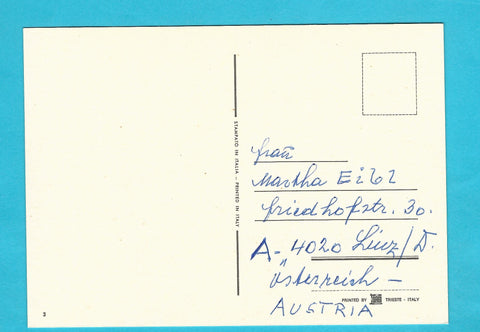 Frau
Martha Eibl
Friedhofstr. 30.
A-4020 Linz/D.
Österreich –
AUSTRIA
STAMPATO IN ITALIA - PRINTED IN ITALY
PRINTED BY TRIESTE - ITALY
3